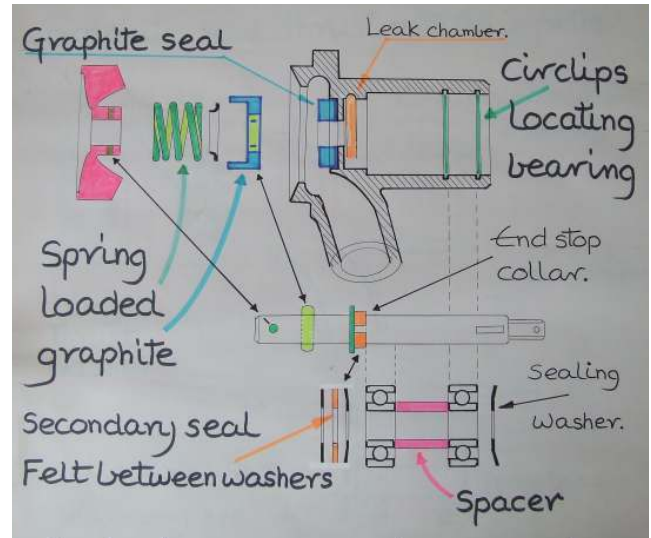 Graphite seal
Leak chamber.
Circlips
locating
bearing
Spring
loaded
graphite
End stop
collar.
Sealing
washer.
Secondary seal
Felt between washers
Spacer